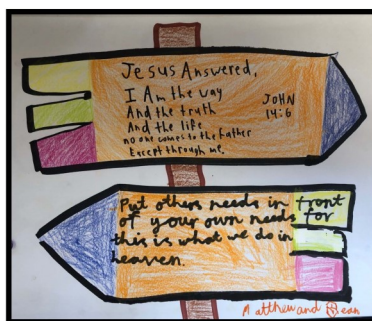 Jesus Answered,
I Am the way
And the truth
And the life
no one comes to the Father
Except through me.
JOHN
14:6
Put others needs in front
of your own needs for
this is what we do in
heaven.
Matthew and Sean